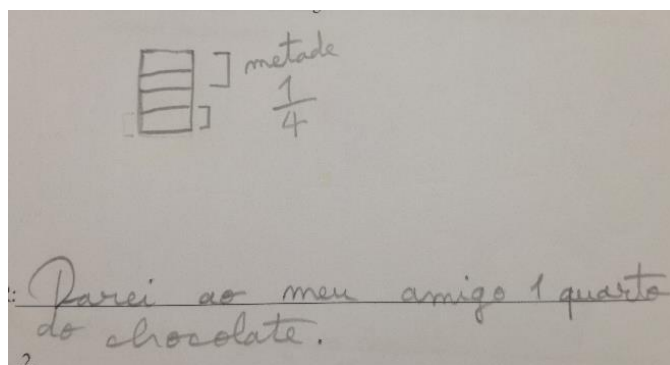 metade
1
4
Darei ao meu amigo 1 quarto
do chocolate.
2